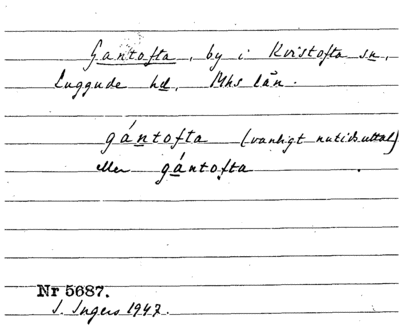 Gantofta, by i Kvistofta sn,
Luggude hd, Mhs län.
gántofta (vanligt nutidsuttal)
eller gántofta
Nr 5687.
I. Ingers 1947.